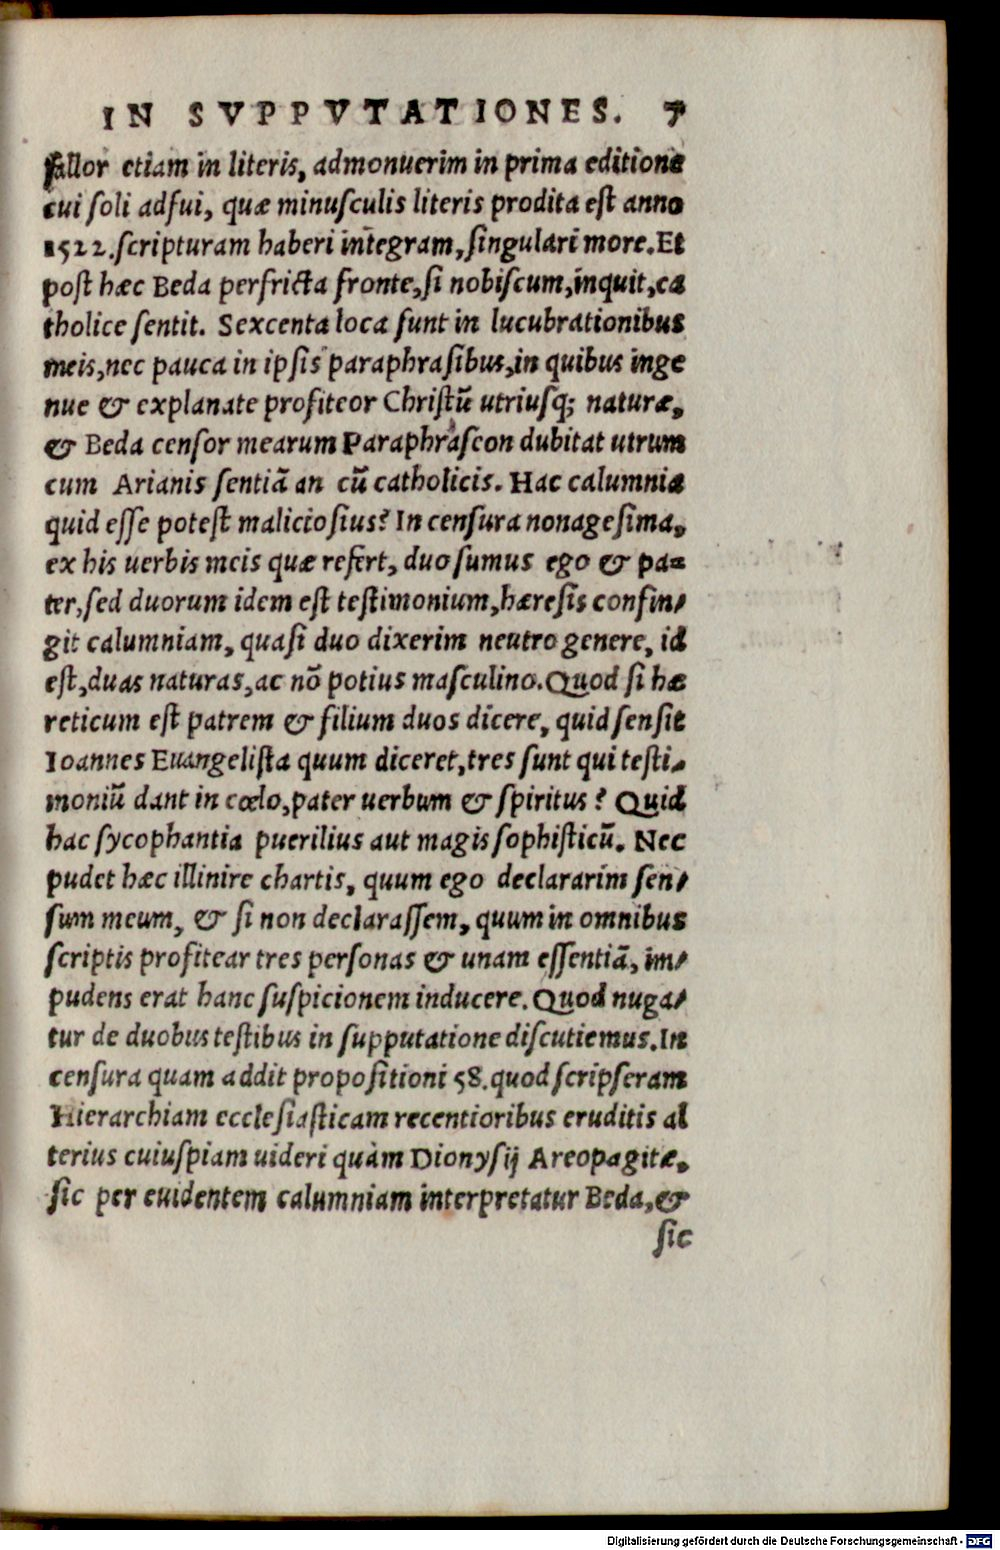 IN SVPPVTATIONES. 7
fallor etiam in literis, admonuerim in prima editione
cui soli adfui, quæ minusculis literis prodita est anno
1522. scripturam haberi integram, singulari more. Et
post hæc Beda perfricta fronte, si nobiscum, inquit, ca
tholice sentit. Sexcenta loca sunt in lucubrationibus
meis, nec pauca in ipsis paraphrasibus, in quibus inge
nue & explanate profiteor Christū utriusq; naturæ,
& Beda censor mearum Paraphrasεon dubitat utrum
cum Arianis sentiā an cū catholicis. Hac calumnia
quid esse potest maliciosius? In censura nonagesima,
ex his uerbis meis quæ refert, duo sumus ego & pa-
ter, sed duorum idem est testimonium, hæresis confin-
git calumniam, quasi duo dixerim neutro genere, id
est, duas naturas, ac nō potius masculino. Quod si hæ
reticum est patrem & filium duos dicere, quid sensit
Ioannes Euangelista quum diceret, tres sunt qui testi-
moniū dant in cœlo, pater uerbum & spiritus? Quid
hac sycophantia puerilius aut magis sophisticū. Nec
pudet hæc illinire chartis, quum ego declararim sen-
sum meum, & si non declarassem, quum in omnibus
scriptis profitear tres personas & unam essentiā, im-
pudens erat hanc suspicionem inducere. Quod nuga-
tur de duobus testibus in supputatione discutiemus. In
censura quam addit propositioni 58. quod scripseram
Hierarchiam ecclesiasticam recentioribus eruditis al
terius cuiuspiam uideri quàm Dionysij Areopagitæ.
sic per euidentem calumniam interpretatur Beda, &
sic
Digitalisierung gefördert durch die Deutsche Forschungsgemeinschaft - DFG